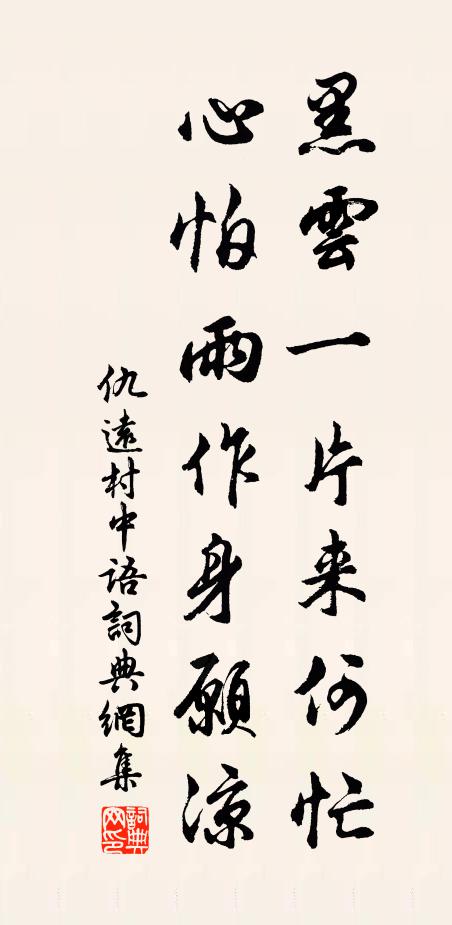 黑雲一片来何忙
心怕雨作身願涼
仇遠村中語詞典網集
詞典網印